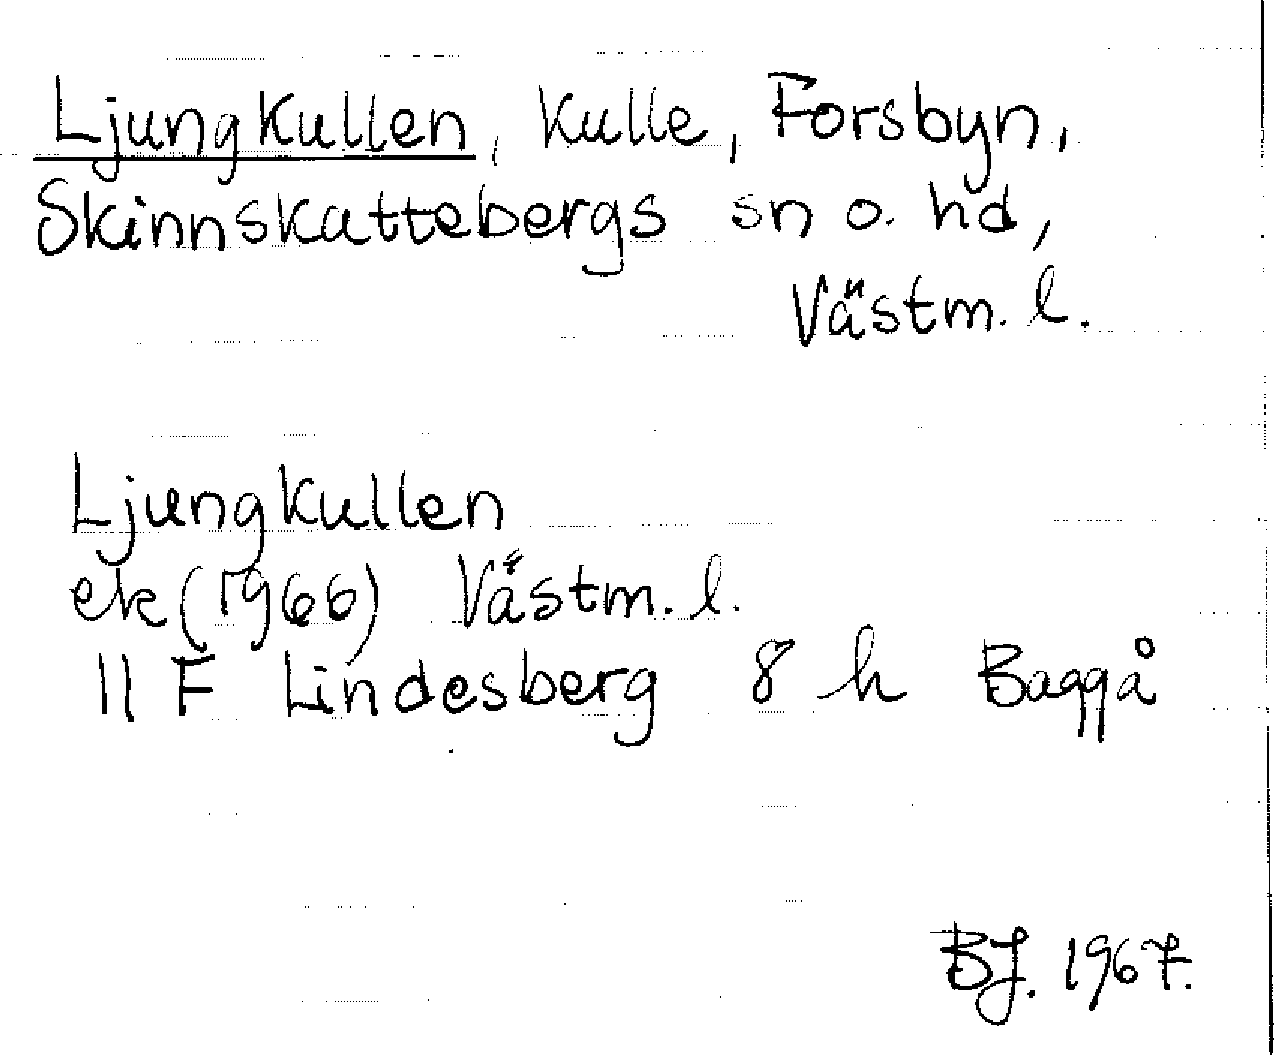 Ljungkullen, kulle, Forsbyn,
Skinnskattebergs sn o. hd,
Västm. l.
Ljungkullen
ek (1966) Västm. l.
11 F Lindesberg 8 h Baggå
BJ. 1967.